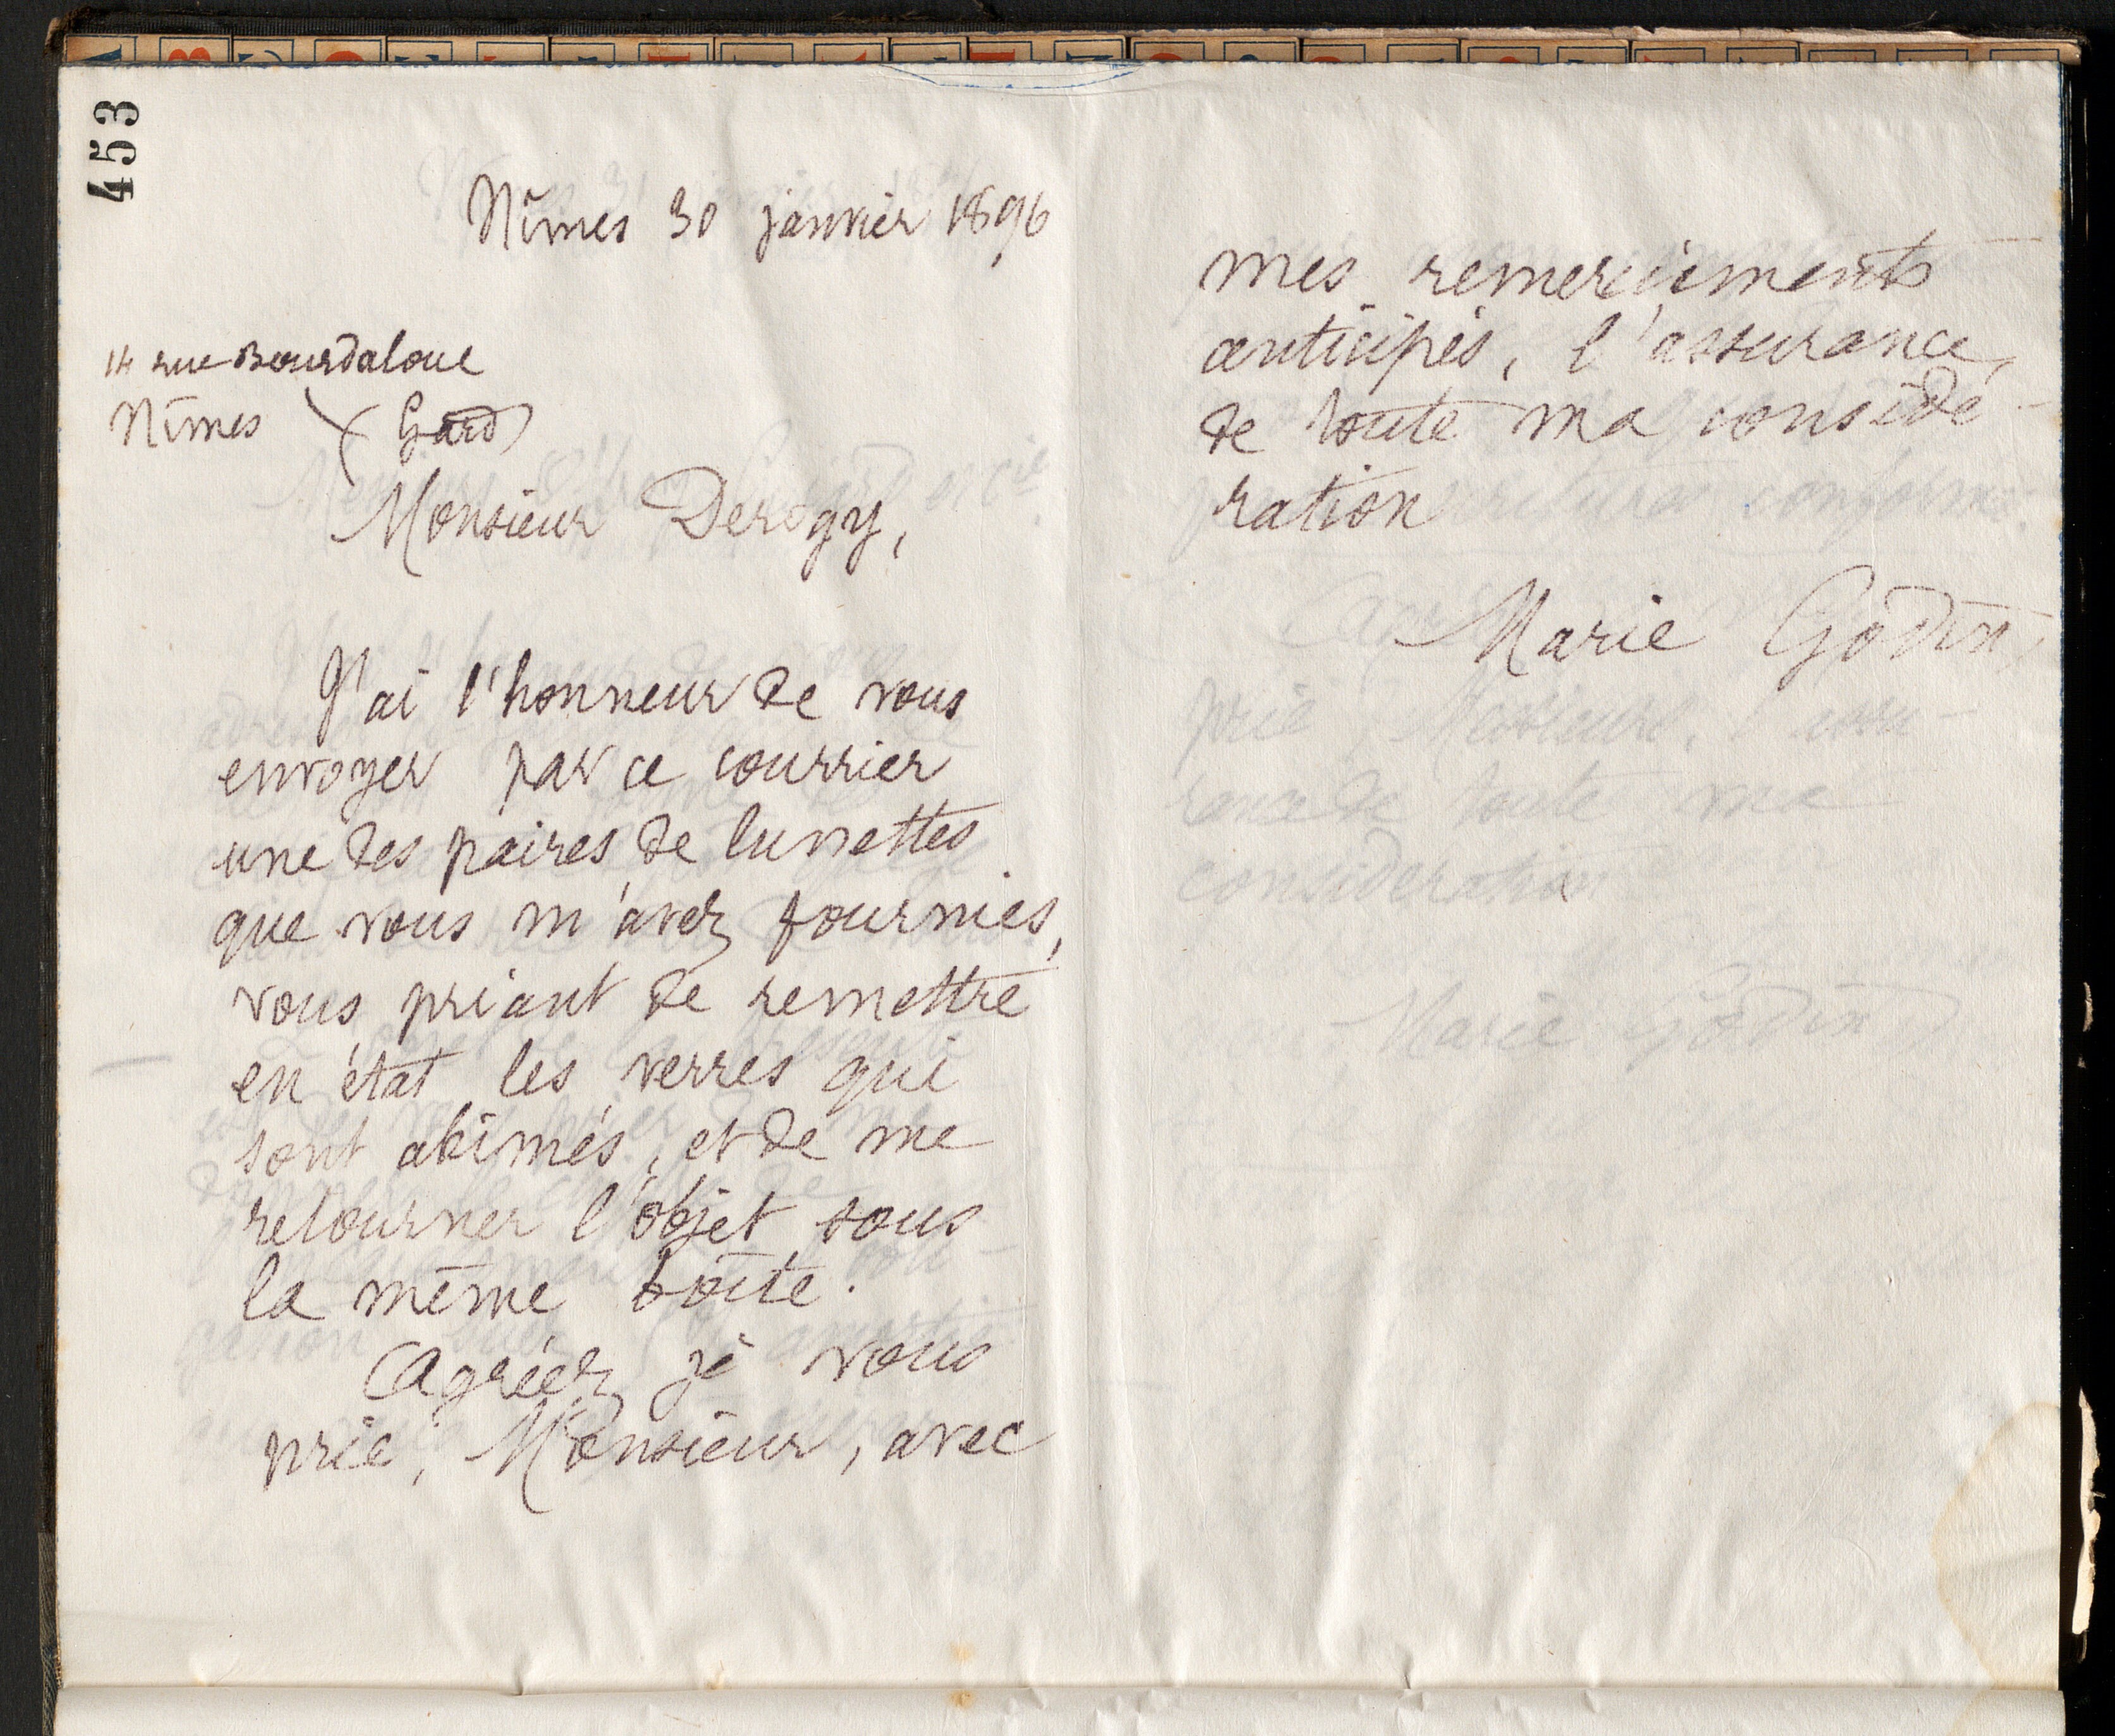 453
Nîmes 30 janvier 1896
14 rue Bourdaloue
Nîmes (Gard)
Monsieur Derogy,
J'ai l'honneur de vous
envoyer par ce courrier
une des paires de lunettes
que vous m'avez fournies,
vous priant de remettre
en état les verres qui
sont abîmés, et de me
retourner l'objet sous
la même boîte.
Agréez, je vous
prie, Monsieur, avec
mes remerciements
anticipés, l'assurance
de toute ma considé-
ration
Marie Godin